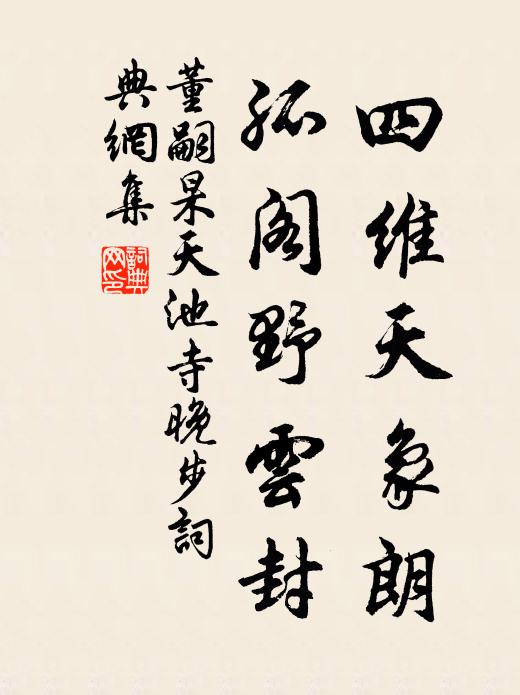 四維天象朗
孤閣野雲封
董嗣杲天池寺晚步詞
典網集
詞典網印